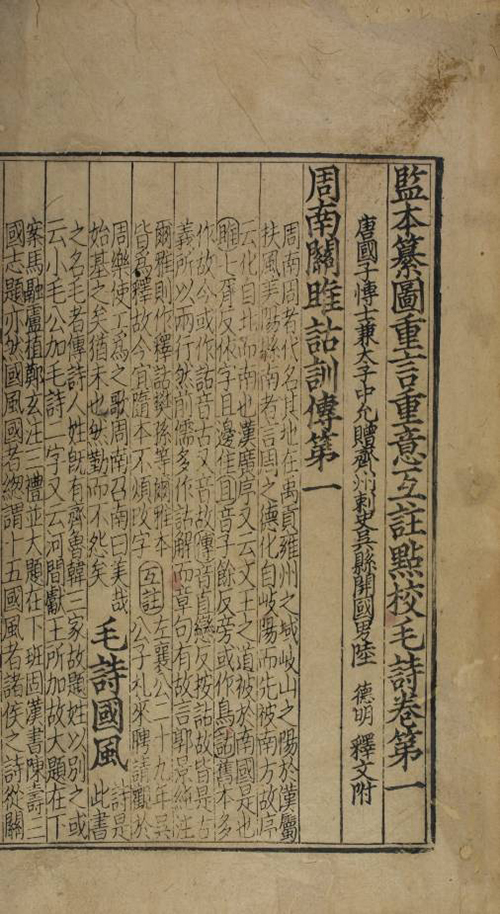 監本纂圖重言重意互註點校毛詩卷第一
唐國子博士兼太子中允贈齊州刺史吳縣開國男陸 德明 釋文附
周南關雎詁訓傳第一
周南周者代名其地在禹貢雍州之域岐山之陽於漢屬
扶風美陽縣南者言周之德化自岐陽而先被南方故序
云化自北而南也漢廣序又云文王之道被於南國是也
雎七胥反依字且邊隹且音子餘反旁或作鳥詁舊本多
作故今或作詁音古又音故傳音直戀反按詁故皆是古
義所以兩行然前儒多作詁解而章句有故言郭景純注
爾雅則作釋詁樊孫等爾雅本
皆爲釋故今宜隨本不煩改字
互註
左襄公二十九年吳
公子札來聘請觀於
周樂使工爲之歌周南召南曰美哉
始基之矣猶未也然勤而不怨矣
毛詩國風
詩是
此書
之名毛者傳詩人姓既有齊魯韓三家故題姓以別之或
云小毛公加毛詩二字又云河間獻王所加故大題在下
案馬融盧植鄭玄注三禮並大題在下班固漢書陳壽三
國志題亦然國風國者總謂十五國風者諸侯之詩從關